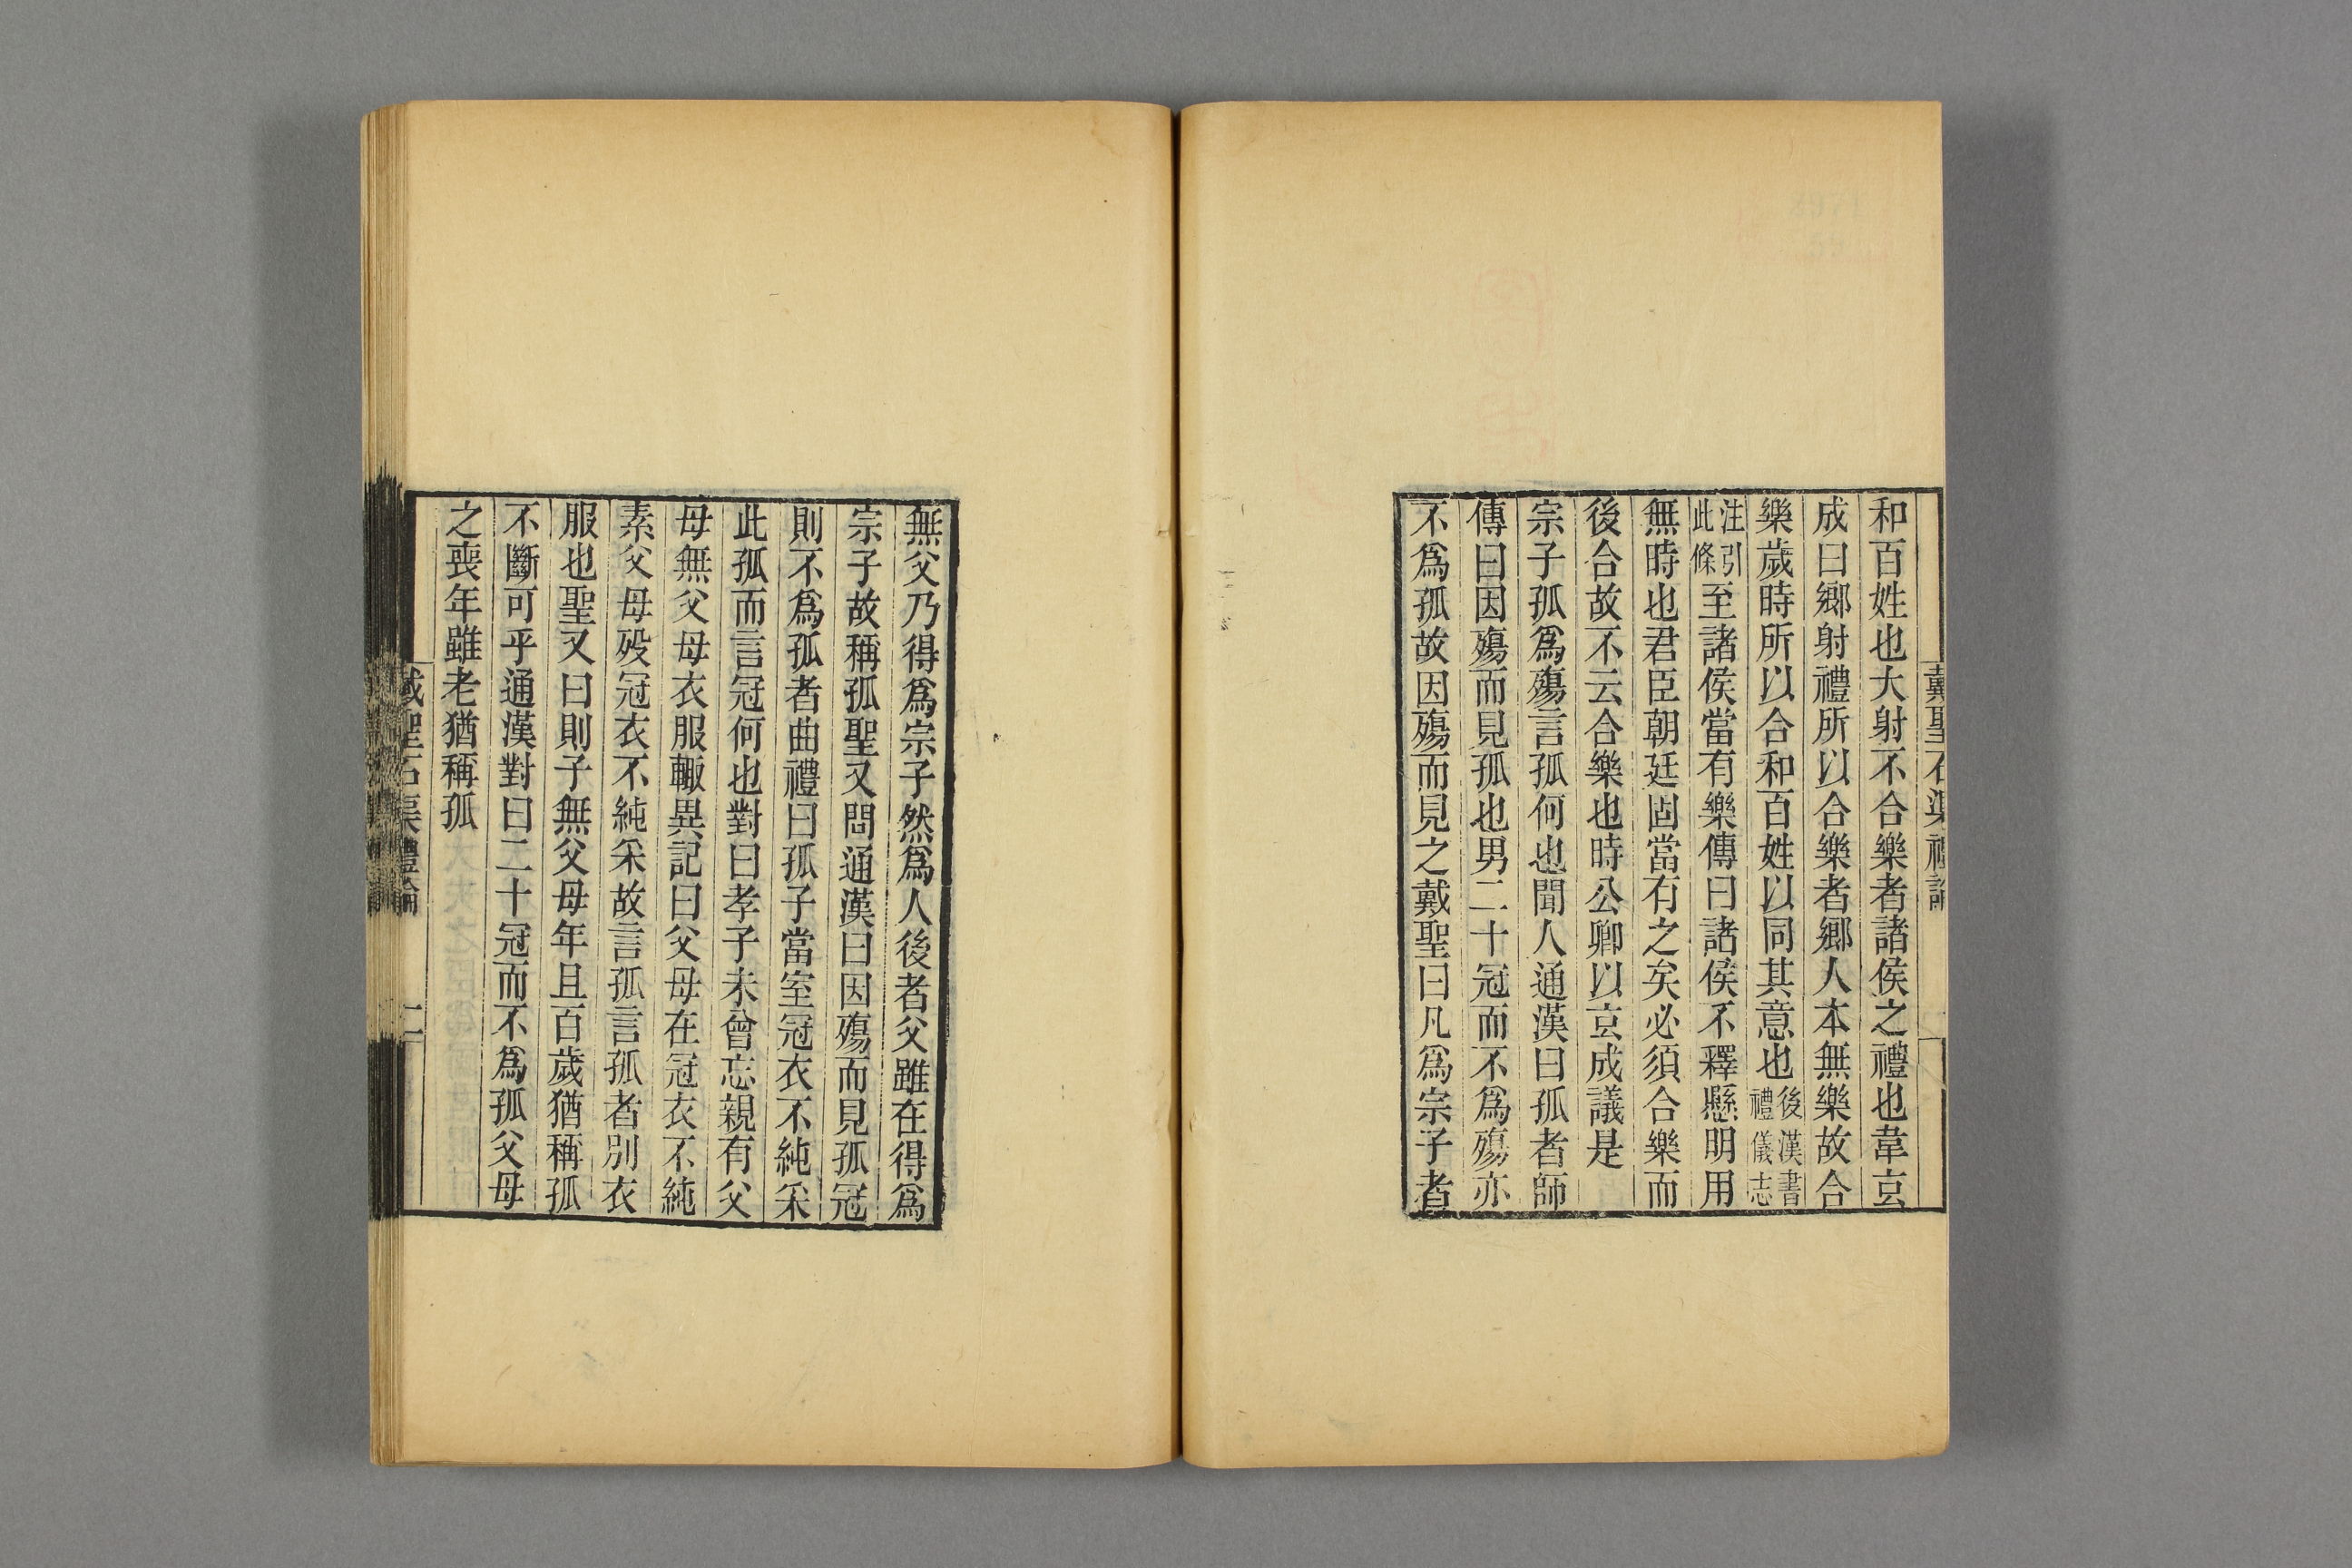 戴聖石渠禮論
和百姓也大射不合樂者諸侯之禮也韋玄
成曰鄉射禮所以合樂者鄉人本無樂故合
樂歲時所以合和百姓以同其意也後漢書禮儀志
注引此條至諸侯當有樂傳曰諸侯不釋懸明用
無時也君臣朝廷固當有之矣必須合樂而
後合故不云合樂也時公卿以玄成議是
宗子孤爲殤言孤何也聞人通漢曰孤者師
傳曰因殤而見孤也男二十冠而不爲殤亦
不爲孤故因殤而見之戴聖曰凡爲宗子者
無父乃得爲宗子然爲人後者父雖在得爲
宗子故稱孤聖又問通漢曰因殤而見孤冠
則不爲孤者曲禮曰孤子當室冠衣不純采
此孤而言冠何也對曰孝子未曾忘親有父
母無父母衣服輙異記曰父母在冠衣不純
素父母殁冠衣不純采故言孤言孤者別衣
服也聖又曰則子無父母年且百歲猶稱孤
不斷可乎通漢對曰二十冠而不爲孤父母
之喪年雖老猶稱孤
戴聖石渠禮論
二